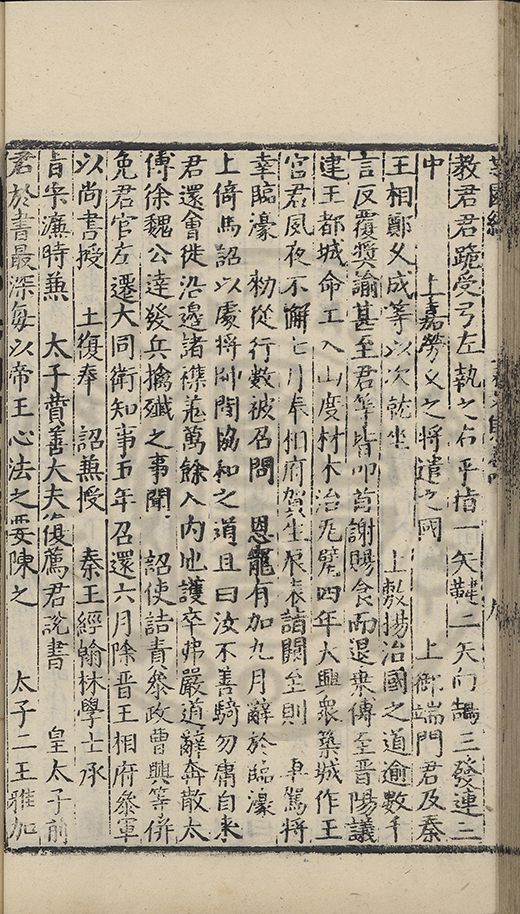 教君君跪受弓左執之右手搢一矢鞬二矢向鵠三發連二
中　上嘉勞久之將遣之國　上御端門君及秦
王相鄭久成等以次就坐　上敷揚治國之道逾數千
言反覆獎諭甚至君等皆叩首謝賜食而退乗傳至晋陽議
建王都城命工入山度材木治瓦甓四年大興衆築城作王
宫君夙夜不懈七月奉相府賀生辰表詣闕至則　車駕將
幸臨濠　勑從行數被召問　恩寵有加九月辭於臨濠
上倚馬詔以處將帥間協和之道且曰汝不善騎勿庸自来
君還會徙沿邊諸襍萬餘入内地護卒弗嚴道辭奔散太
傅徐魏公達發兵擒殲之事聞　詔使詰責叅政曹興等併
免君官左遷大同衛知事五年召還六月除晋王相府叅軍
以尚書授　土復奉　詔兼授　秦王經翰林學士承
旨宋濂時兼　太子賛善大夫復薦君説書　皇太子前
君於書最深每以帝王心法之要陳之　太子二王雅加